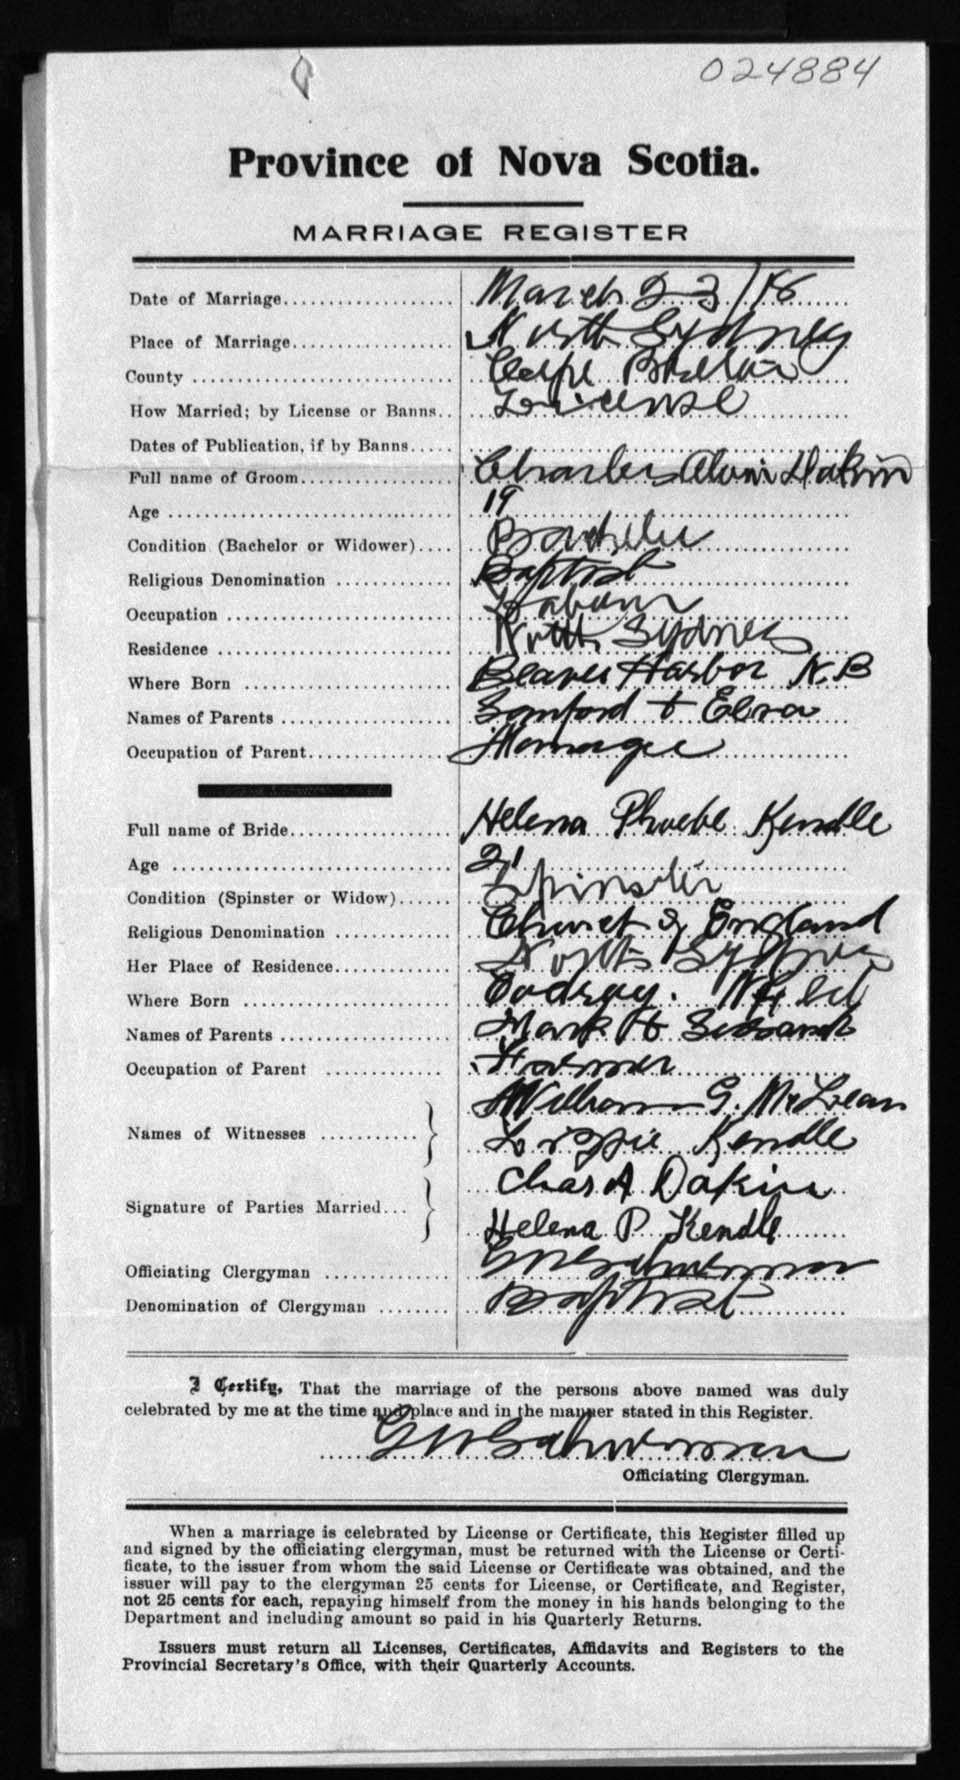 024884
Province of Nova Scotia.
MARRIAGE REGISTER
Date of Marriage March 23/18
Place of Marriage North Sydney
County Cape Breton
How Married; by License or Banns License
Dates of Publication, if by Banns
Full name of Groom Charles Alvin Dakin
Age 19
Condition (Bachelor or Widower) Bachelor
Religious Denomination Baptist
Occupation
Residence North Sydney
Where Born Beaver Harbor N.B
Names of Parents Samford + Ebra
Occupation of Parent Manager
Full name of Bride Helena Phoebe Kendle
Age 21
Condition (Spinster or Widow) Spinster
Religious Denomination Church of England
Her Place of Residence North Sydney
Where Born Codroy. Nfld
Names of Parents Mark +
Occupation of Parent Farmer
Names of Witnesses William G. McLean
Kendle
Signature of Parties Married Chas A Dakin
Helena P Kendle
Officiating Clergyman
Denomination of Clergyman Baptist
I Certify, That the marriage of the persons above named was duly
celebrated by me at the time and place and in the manner stated in this Register.
Officiating Clergyman.
When a marriage is celebrated by License or Certificate, this Register filled up
and signed by the officiating clergyman, must be returned with the License or Certi-
ficate, to the issuer from whom the said License or Certificate was obtained, and the
issuer will pay to the clergyman 25 cents for License, or Certificate, and Register,
not 25 cents for each, repaying himself from the money in his hands belonging to the
Department and including amount so paid in his Quarterly Returns.
Issuers must return all Licenses, Certificates, Affidavits and Registers to the
Provincial Secretary's Office, with their Quarterly Accounts.